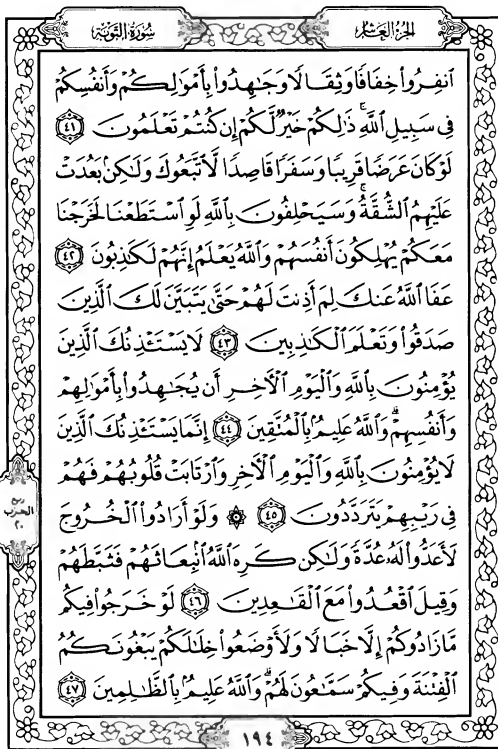 سُورَةُ التَّوْبَةِ
الجُزْءُ العَاشِرُ
ٱنفِرُوا۟ خِفَافًا وَثِقَالًا وَجَـٰهِدُوا۟ بِأَمْوَٰلِكُمْ وَأَنفُسِكُمْ
فِى سَبِيلِ ٱللَّهِ ۚ ذَٰلِكُمْ خَيْرٌ لَّكُمْ إِن كُنتُمْ تَعْلَمُونَ ٤١
لَوْ كَانَ عَرَضًا قَرِيبًا وَسَفَرًا قَاصِدًا لَّٱتَّبَعُوكَ وَلَـٰكِنۢ بَعُدَتْ
عَلَيْهِمُ ٱلشُّقَّةُ ۚ وَسَيَحْلِفُونَ بِٱللَّهِ لَوِ ٱسْتَطَعْنَا لَخَرَجْنَا
مَعَكُمْ يُهْلِكُونَ أَنفُسَهُمْ وَٱللَّهُ يَعْلَمُ إِنَّهُمْ لَكَـٰذِبُونَ ٤٢
عَفَا ٱللَّهُ عَنكَ لِمَ أَذِنتَ لَهُمْ حَتَّىٰ يَتَبَيَّنَ لَكَ ٱلَّذِينَ
صَدَقُوا۟ وَتَعْلَمَ ٱلْكَـٰذِبِينَ ٤٣ لَا يَسْتَـْٔذِنُكَ ٱلَّذِينَ
يُؤْمِنُونَ بِٱللَّهِ وَٱلْيَوْمِ ٱلْـَٔاخِرِ أَن يُجَـٰهِدُوا۟ بِأَمْوَٰلِهِمْ
وَأَنفُسِهِمْ ۗ وَٱللَّهُ عَلِيمٌۢ بِٱلْمُتَّقِينَ ٤٤ إِنَّمَا يَسْتَـْٔذِنُكَ ٱلَّذِينَ
لَا يُؤْمِنُونَ بِٱللَّهِ وَٱلْيَوْمِ ٱلْـَٔاخِرِ وَٱرْتَابَتْ قُلُوبُهُمْ فَهُمْ
فِى رَيْبِهِمْ يَتَرَدَّدُونَ ٤٥ ۞ وَلَوْ أَرَادُوا۟ ٱلْخُرُوجَ
لَأَعَدُّوا۟ لَهُۥ عُدَّةً وَلَـٰكِن كَرِهَ ٱللَّهُ ٱنۢبِعَاثَهُمْ فَثَبَّطَهُمْ
وَقِيلَ ٱقْعُدُوا۟ مَعَ ٱلْقَـٰعِدِينَ ٤٦ لَوْ خَرَجُوا۟ فِيكُم
مَّا زَادُوكُمْ إِلَّا خَبَالًا وَلَأَوْضَعُوا۟ خِلَـٰلَكُمْ يَبْغُونَكُمُ
ٱلْفِتْنَةَ وَفِيكُمْ سَمَّـٰعُونَ لَهُمْ ۗ وَٱللَّهُ عَلِيمٌۢ بِٱلظَّـٰلِمِينَ ٤٧
ربع
الحزب
٢٠
١٩٤